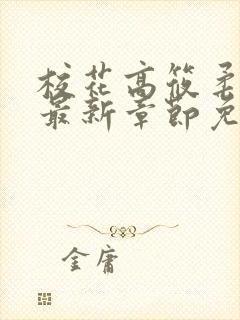 校花高筱柔
最新章节免
金庸